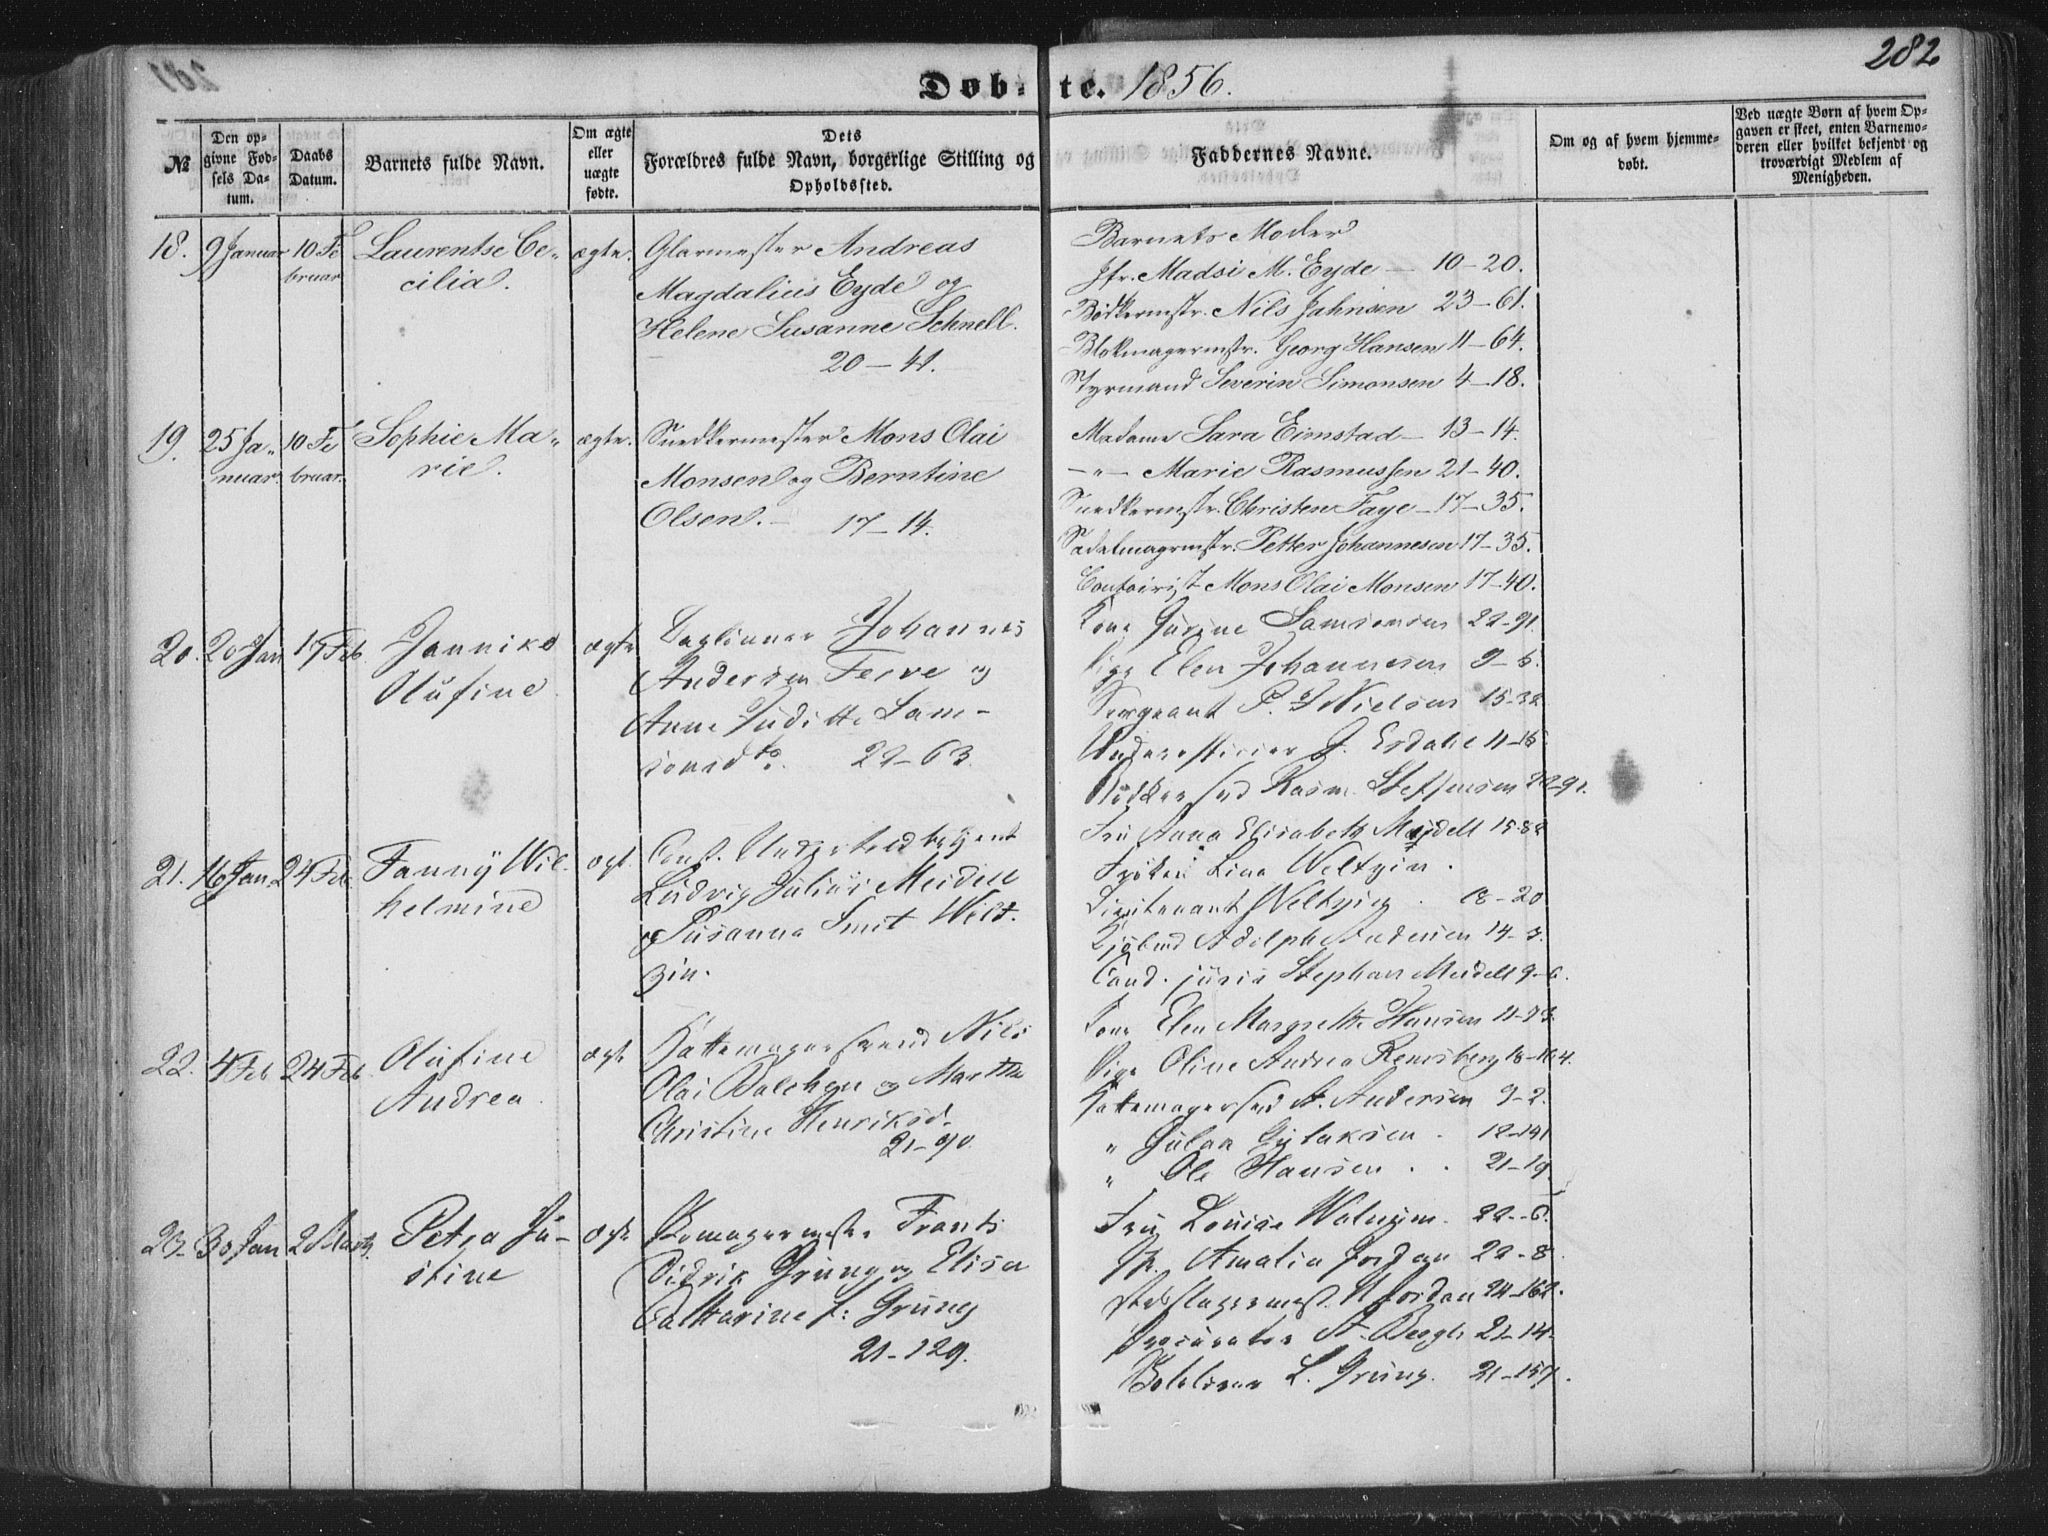 282
Døbte. 1856.
№
Den opgivne Fødsels Datum.
Daabs Datum.
Barnets fulde Navn.
Om ægte eller uægte fødte.
Dets Forældres fulde Navn, borgerlige Stilling og Opholdssted.
Faddernes Navne.
Om og af hvem hjemmedøbt.
Ved uægte Børn af hvem Opgaven er skeet, enten Barnemoderen eller hvilket bekjendt og troværdigt Medlem af Menigheden.
18. 9 Januar 10 Februar
Laurentse Cecilia.
ægte.
Glarmester Andreas
Magdalius Eyde og
Helene Susanne Schnell.
20-41.
Barnets Moder
Jfr. Madsi M. Eyde 10-20.
Bødkermstr. Nils Jahnsen 23-61.
Blokmagermstr. Georg Hansen 11-64.
Styrmand Severin Simonsen 4-18.
19. 25 Januar 10 Februar.
Sophie Marie.
ægte.
Snedkermester Mons Olai
Monsen og Berntine
Olsen. 17-14.
Madame Sara Eimstad 13-14.
-"- Marie Rasmussen 21-40.
Snedkermstr. Christen Faye 17-35.
Sadelmagrmstr. Petter Johannesen 17-35.
Contoirist Mons Olai Monsen 17-40.
20. 20 Jan 17 Feb.
Jannike
Olufine
ægte
Daglønner Johannes
Andersen Ferve og
Anne Juditte Samsonsdtr. 22-63.
Kone Samsonsen 22-91.
Pige Elen Johannesen 9-
Sergeant P. Nielsen 15-32
Underofficier J. Esdahl
Rasm. Steffensen 22-91.
21. 16 Jan. 24 Feb.
Fanny Wilhelmine
ægt.
Const.
Ludvig Julius Meidell
og Susanna Smit Welt-
zin.
Fru Anna Elisabeth Meydell
Frøken Lina Weltzin.
Lieutenant Weltzin. 18-20
Adolph Andersen 14-3.
Cand. juris Stephan Meidell 9-6.
22. 4 Feb 24 Feb.
Olufine
Andrea.
ægte
Hattemagersvend Nils
Olai Balchen og Martha
Christine Henriksd.
21-90.
Kone Elen Margrethe Hansen
Pige Oline Andrea Rensberg
Hattemagersvd A. Andersen 9-2.
" Julaa Gulaksen. 12-141
" Ole Hansen . . 21-19
23. 30 Jan 2 Marts.
Petra Justine
ægte
Komagermester Frants
Didrik Grung og Elisa
Catharine f: Grung
21-129.
Fru Louise 22-6.
Jfr. Amalia Jordan 22-8.
Jordan 24-162.
Procurator A. Bergh 21-14.
L. Grung. 21-157.